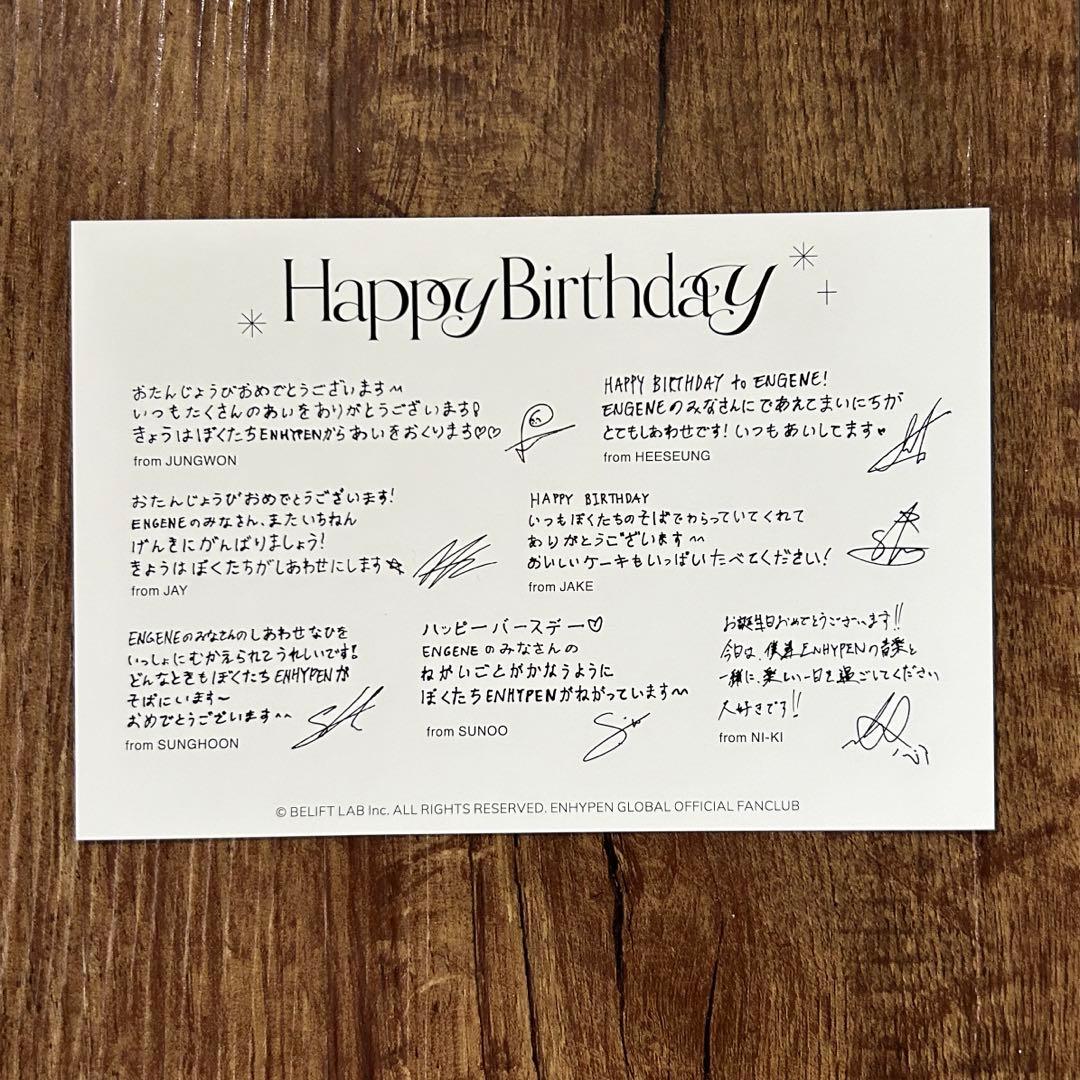 Happy Birthday
おたんじょうびおめでとうございます〜
いつもたくさんのあいをありがとうございます!
きょうはぼくたちENHYPENからあいをおくります♡♡
from JUNGWON
HAPPY BIRTHDAY to ENGENE!
ENGENEのみなさんにであえてまいにちが
とてもしあわせです!いつもあいしてます♥
from HEESEUNG
おたんじょうびおめでとうございます!
ENGENEのみなさん、またいちねん
げんきにがんばりましょう!
きょうはぼくたちがしあわせにします☆
from JAY
HAPPY BIRTHDAY
いつもぼくたちのそばでわらっていてくれて
ありがとうございます〜
おいしいケーキもいっぱいたべてください!
from JAKE
ENGENEのみなさんのしあわせなひを
いっしょにむかえられてうれしいです!
どんなときもぼくたちENHYPENが
そばにいます〜
おめでとうございます^^
from SUNGHOON
ハッピーバースデー♡
ENGENEのみなさんの
ねがいごとがかなうように
ぼくたちENHYPENがねがっています〜
from SUNOO
お誕生日おめでとうございます!!
今日は、僕達ENHYPENの音楽と
一緒に、楽しい一日を過ごしてください
大好きです!!
from NI-KI
© BELIFT LAB Inc. ALL RIGHTS RESERVED. ENHYPEN GLOBAL OFFICIAL FANCLUB